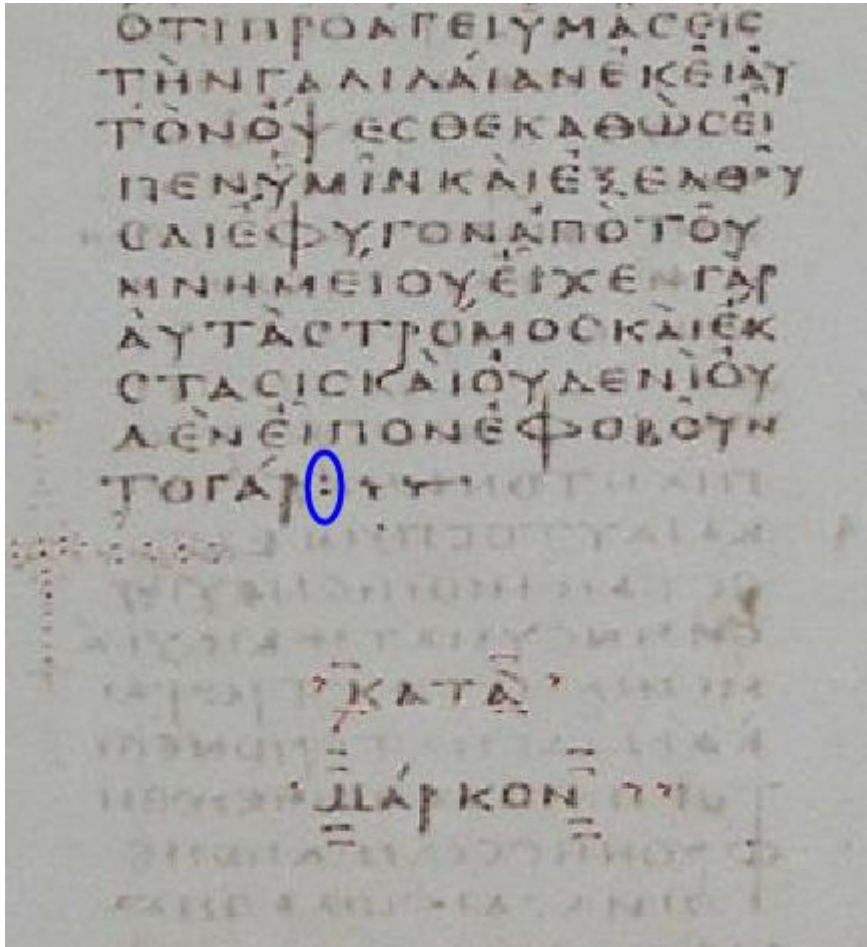 ΟΤΙΠΡΟΑΓΕΙΥΜΑϹΕΙϹ
ΤΗΝΓΑΛΙΛΑΙΑΝΕΚΕΙΑΥ
ΤΟΝΟΨΕϹΘΕΚΑΘΩϹΕΙ
ΠΕΝΥΜΙΝΚΑΙΕΞΕΛΘΟΥ
ϹΑΙΕΦΥΓΟΝΑΠΟΤΟΥ
ΜΝΗΜΕΙΟΥΕΙΧΕΝΓΑΡ
ΑΥΤΑϹΤΡΟΜΟϹΚΑΙΕΚ
ϹΤΑϹΙϹΚΑΙΟΥΔΕΝΙΟΥ
ΔΕΝΕΙΠΟΝΕΦΟΒΟΥΝ
ΤΟΓΑΡ:
ΚΑΤΑ
ΜΑΡΚΟΝ